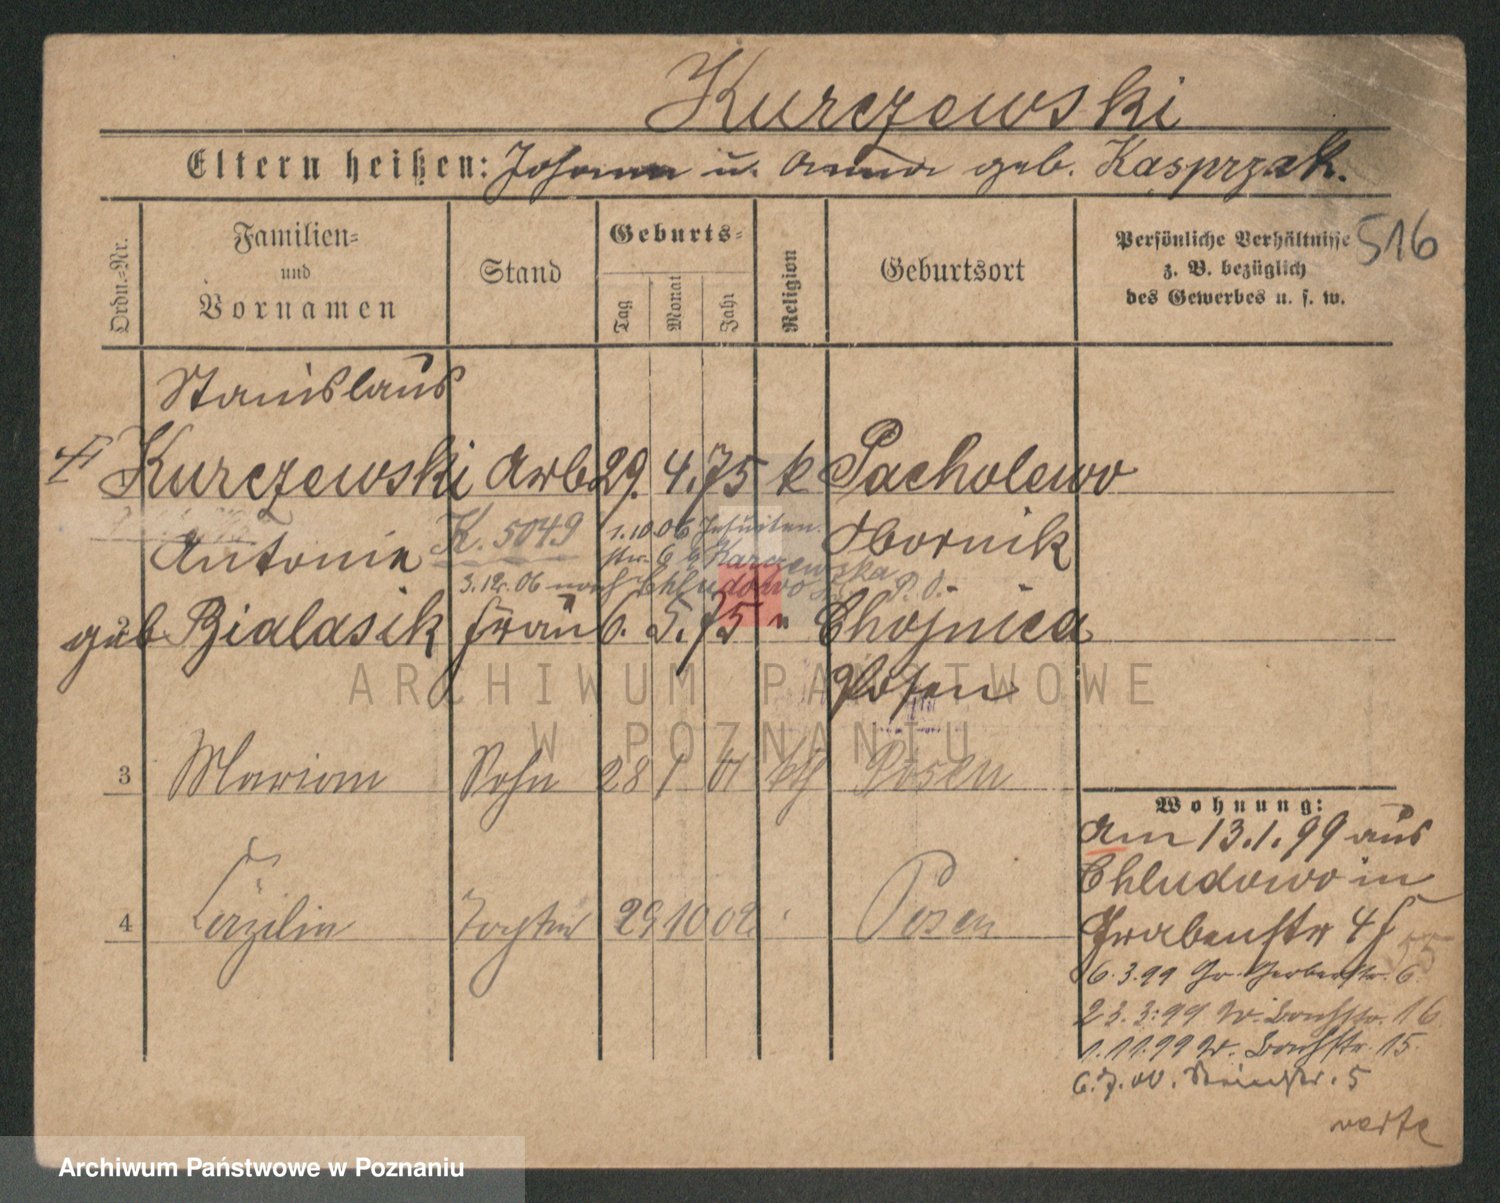 Kurczewski
Eltern heißen: Johann u. Anna geb. Kasprzak.
516
Ordn.-Nr.
Familien-
und
Vornamen
Stand
Geburts-
Tag
Monat
Jahr
Religion
Geburtsort
Persönliche Verhältnisse
z. B. bezüglich
des Gewerbes u. s. w.
Stanislaus
Kurczewski Arb. 29. 4. 75 k Pacholewo
K. 5049 1.10.06 Jesuiten
Antonie Obornik
str. 6 b. Karczewska
3.12.06 nach Chludowo P. O.
geb Bialasik Frau 6. 5. 75 " Chojnica
Posen
3 Marian Sohn 28 1 01 kth Posen
4 Cäzilia Tochter 29 10 02 Posen
Wohnung:
Am 13.1.99 aus
Chludowo in
Grabenstr 4
6.3.99 Gr. Gerberstr. 6
23.3.99 W. 16
1.11.99 W. 15
6.7.00. 5
verte
ARCHIWUM PAŃSTWOWE
W POZNANIU
Archiwum Państwowe w Poznaniu